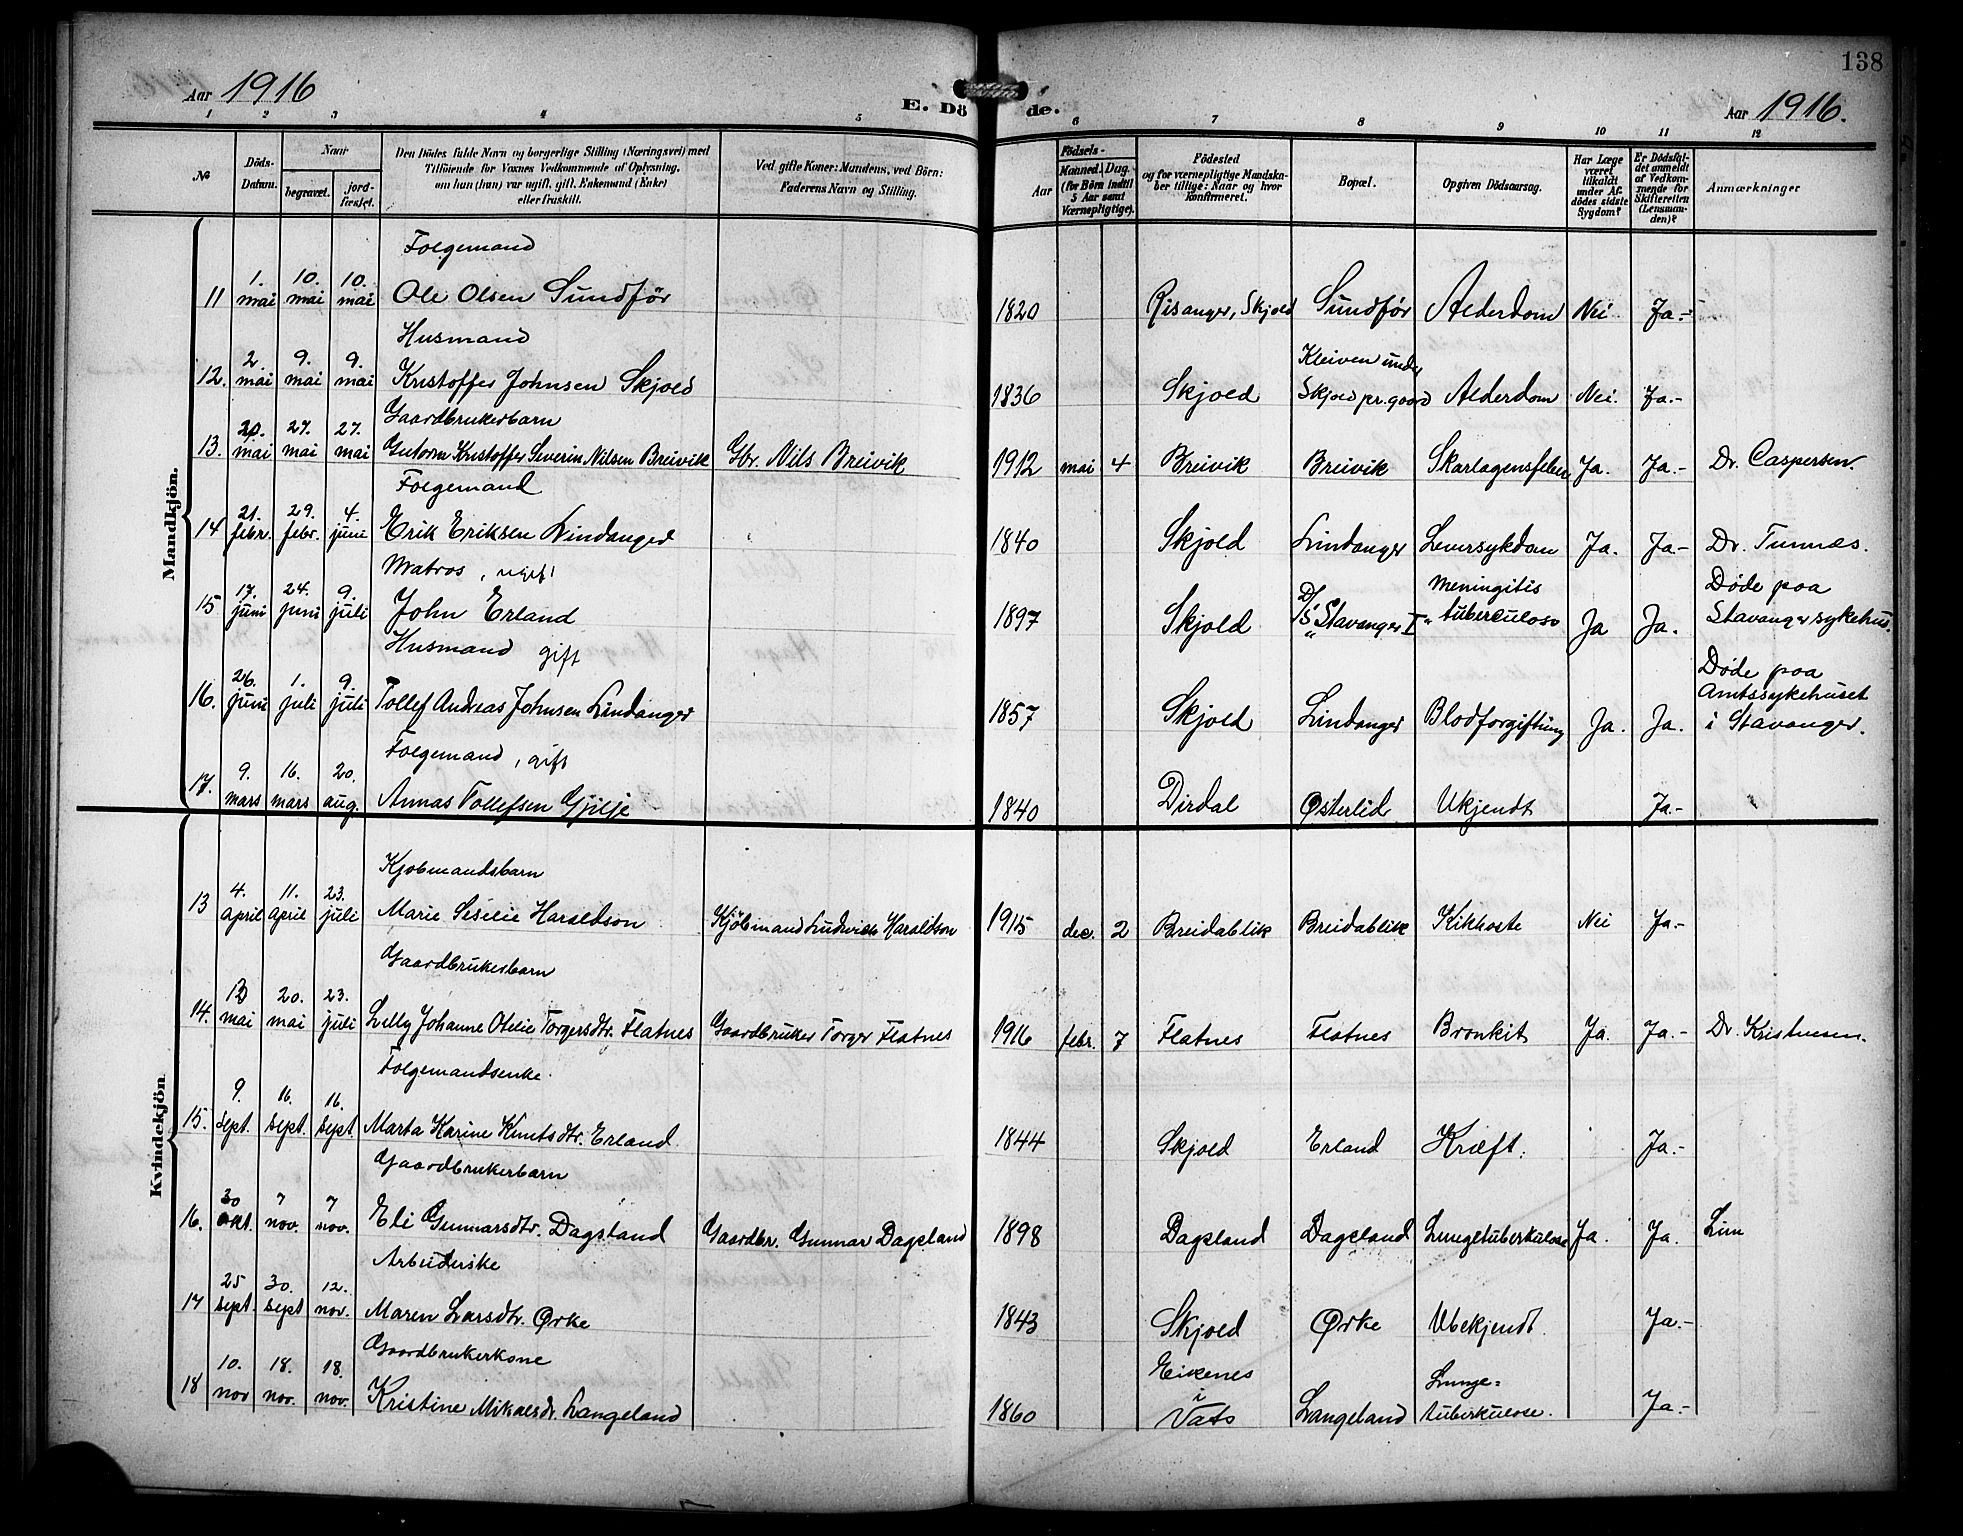 138
Aar 1916
E. Döde.
Aar 1916.
1 2 3 4 5 6 7 8 9 10 11 12
No
Döds-Datum.
Naar
begravet.
jord-fæstet.
Den Dödes fulde Navn og borgerlige Stilling (Næringsvei) med
Tilföiende for Voxnes Vedkommende af Oplysning,
om han (hun) var ugift, gift, Enkemand (Enke)
eller fraskilt.
Ved gifte Koner: Mandens, ved Börn:
Faderens Navn og Stilling.
Födsels-
Aar
Maaned. Dag.
(for Börn indtil
5 Aar samt
Værnepligtige).
Födested
og for værnepligtige Mandska-
ber tillige: Naar og hvor
konfirmeret.
Bopæl.
Opgiven Dödsaarsag.
Har Læge
været
tilkaldt
under Af-
dödes sidste
Sygdom?
Er Dödsfal-
det anmeldt
af Vedkom-
mende for
Skifteretten
(Lensman-
den)?
Anmærkninger
Mandkjön.
Folgemand
11 1. mai 10. mai 10. mai Ole Olsen Sundför 1820 Risanger, Skjold Sundför Alderdom Nei Ja.-
Husmand
12. 2. mai 9. mai 9. mai Kristoffer Johnsen Skjold 1836 Skjold Kleiven under Skjold pr.gaard Alderdom Nei. Ja.-
Gaardbrukerbarn
13. 20. mai 27. mai 27. mai Gutorm Kristoffer Severin Nilsen Breivik Gbr. Nils Breivik 1912 mai 4 Breivik Breivik Skarlagensfeber Ja. Ja.- Dr. Caspersen.
Folgemand
14 21. febr. 29. febr. 4. juni Erik Eriksen Lindanger 1840 Skjold Lindanger Leversykdom Ja. Ja- Dr. Tunnæs.
Matros, ugift
15 17. juni 24. juni 9. juli John Erland 1897 Skjold D/S "Stavanger I" Meningitis tuberculoso Ja Ja. Døde paa Stavanger sykehus.
Husmand gift
16. 26. juni 1. juli 9. juli Tollef Andreas Johnsen Lindanger 1857 Skjold Lindanger Blodforgiftning Ja. Ja. Døde paa Amtssykehuset i Stavanger.
Folgemand, gift
17. 9. mars 16. mars 20. aug. Annas Tollefsen Gjilje 1840 Dirdal Østerlid Ukjendt Ja.-
Kvindekjön
Kjøbmandsbarn
13 4. april 11. april 23. juli Marie Sesilie Haraldson Kjöbmand Ludwick Haraldson 1915 dec. 2 Breidablik Breidablik Kikhoste Nei Ja.-
Gaardbrukerbarn
14. mai 20. mai 23. juli Lelly Johanne Otelie Torgersdtr. Flatnes Gaardbruker Torger Flatnes 1916 febr. 7 Flatnes Flatnes Bronkit Ja. Ja.- Dr. Kristensen.
Folgemandsenke.
15. 9. sept. 16. sept. 16. sept. Marta Karine Knutsdtr. Erland. 1844 Skjold Erland Kræft. Ja.-
Gaardbrukerbarn
16. 30 okt. 7 nov. 7 nov. Eli Gunnarsdtr. Dagsland Gaardbr. Gunnar Dagsland 1898 Dagsland Dagsland Lungetuberkulose Ja. Ja. Lim
Arbeiderske
17 25 sept. 30. sept 12. nov. Maren Larsdtr. Ørke 1843 Skjold Ørke Ubekjendt. Ja.-
Gaardbrukerkone
18 10. nov 18. nov. 18. nov. Kristine Mikalsdr. Langeland 1860 Eikenes i Vats Langeland Lunge= tuberkulose. Ja.-